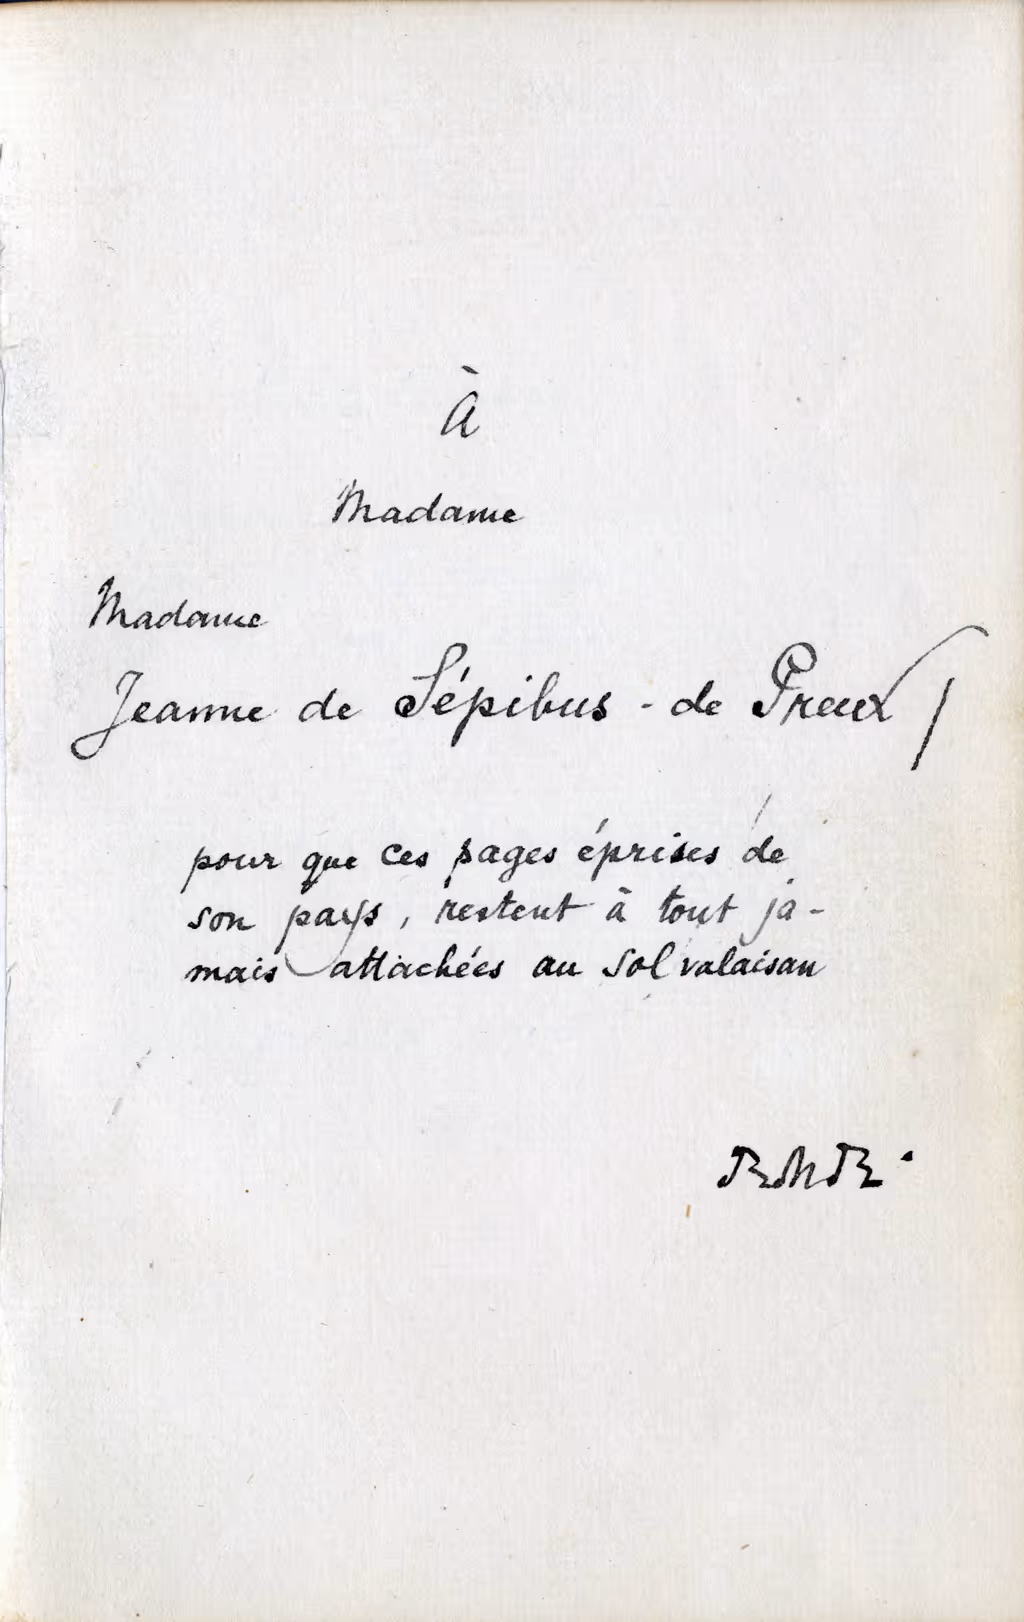 À
Madame
Madame
Jeanne de Sépibus - de Preux
pour que ces pages éprises de
son pays, restent à tout ja-
mais attachées au sol valaisan
RMR.